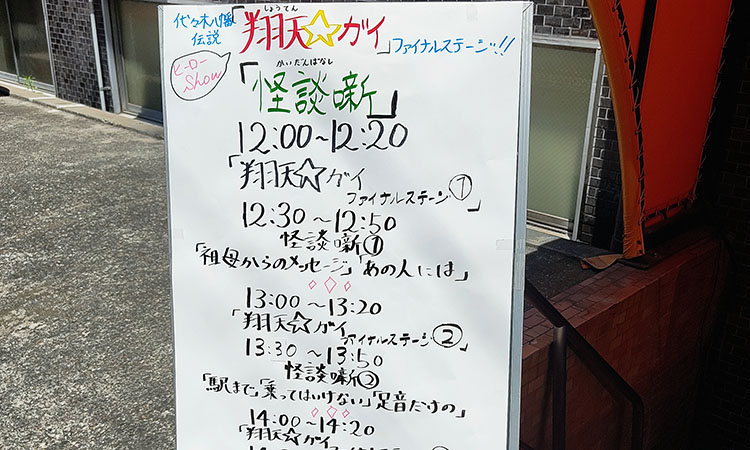 しょうてん
代々木八幡伝説「翔天☆ガイ」ファイナルステージ!!
ヒーローShow
かいだんばなし
「怪談噺」
12:00~12:20
「翔天☆ガイ
ファイナルステージ①」
12:30~12:50
怪談噺①
「祖母からのメッセージ」「あの人には」
13:00~13:20
「翔天☆ガイ
ファイナルステージ②
13:30~13:50
怪談噺②
「駅まで」「乗ってはいけない」「足音だけの」
14:00~14:20
「翔天☆ガイ